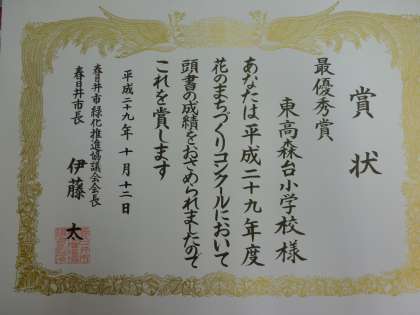 賞状
最優秀賞
東高森台小学校様
あなたは平成二十九年度
花のまちづくりコンクールにおいて
頭書の成績をおさめられましたので
これを賞します
平成二十九年十月十二日
春日井市緑化推進協議会会長
春日井市長 伊藤太